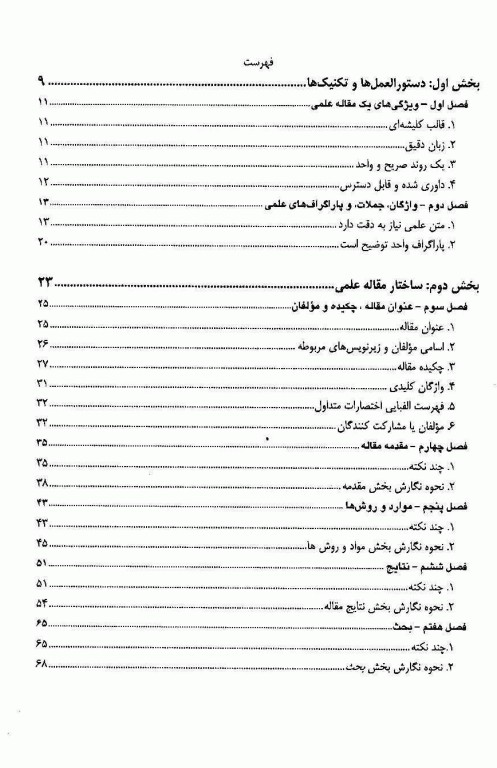 فهرست
بخش اول: دستورالعمل‌ها و تکنیک‌ها ... ۹
فصل اول – ویژگی‌های یک مقاله علمی ... ۱۱
۱. قالب کلیشه‌ای ... ۱۱
۲. زبان دقیق ... ۱۱
۳. یک روند صریح و واحد ... ۱۱
۴. داوری شده و قابل دسترس ... ۱۲
فصل دوم – واژگان، جملات، و پاراگراف‌های علمی ... ۱۳
۱. متن علمی نیاز به دقت دارد ... ۱۳
۲. پاراگراف واحد توضیح است ... ۲۰
بخش دوم: ساختار مقاله علمی ... ۲۳
فصل سوم – عنوان مقاله ، چکیده و مؤلفان ... ۲۵
۱. عنوان مقاله ... ۲۵
۲. اسامی مؤلفان و زیرنویس‌های مربوطه ... ۲۶
۳. چکیده مقاله ... ۲۷
۴. واژگان کلیدی ... ۳۱
۵. فهرست الفبایی اختصارات متداول ... ۳۲
۶. مؤلفان یا مشارکت کنندگان ... ۳۲
فصل چهارم – مقدمه مقاله ... ۳۵
۱. چند نکته ... ۳۵
۲. نحوه نگارش بخش مقدمه ... ۳۸
فصل پنجم – موارد و روش‌ها ... ۴۳
۱. چند نکته ... ۴۳
۲. نحوه نگارش بخش مواد و روش ها ... ۴۵
فصل ششم – نتایج ... ۵۱
۱. چند نکته ... ۵۱
۲. نحوه نگارش بخش نتایج مقاله ... ۵۴
فصل هفتم – بحث ... ۶۵
۱.چند نکته ... ۶۵
۲. نحوه نگارش بخش بحث ... ۶۸